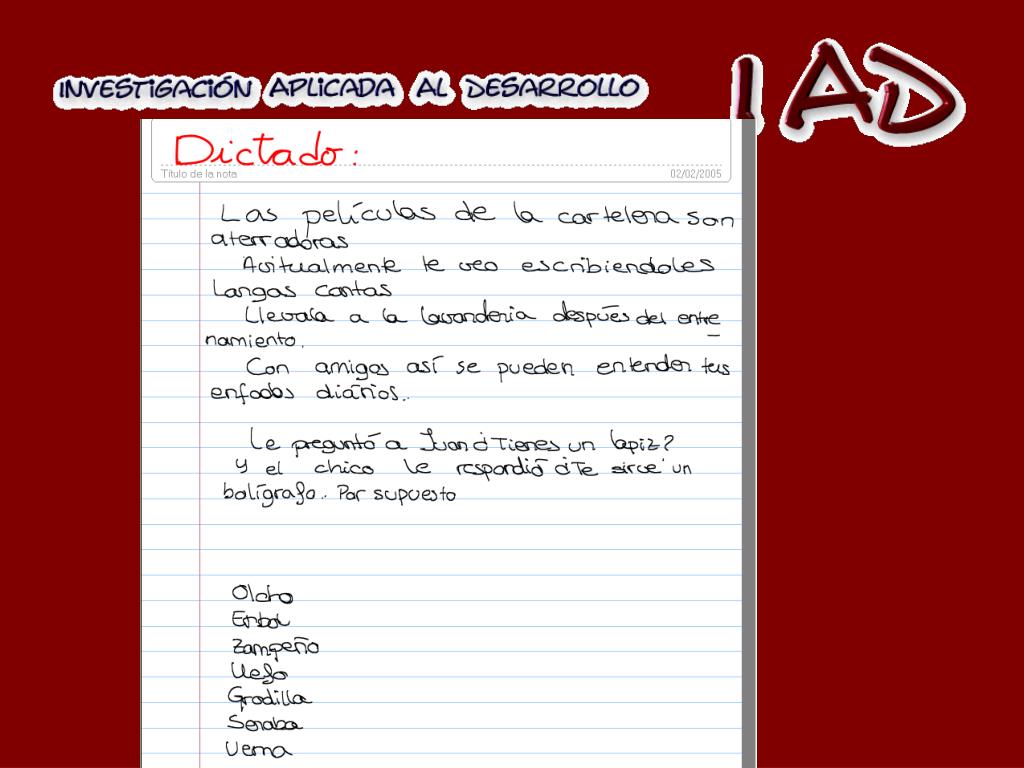 INVESTIGACIÓN APLICADA AL DESARROLLO
IAD
Dictado:
Título de la nota
02/02/2005
Las películas de la cartelera son
aterradoras
Avitualmente le veo escribiendoles
Largas cartas
Llevala a la lavanderia después del entre
namiento.
Con amigos así se pueden entender tus
enfados diários..
Le preguntó a Juan ¿Tienes un lapiz?
Y el chico le respondió ¿Te sirve un
bolígrafo.. Por supuesto
Olcho
Erbol
Zampeño
Llefo
Gradilla
Seraba
Verna